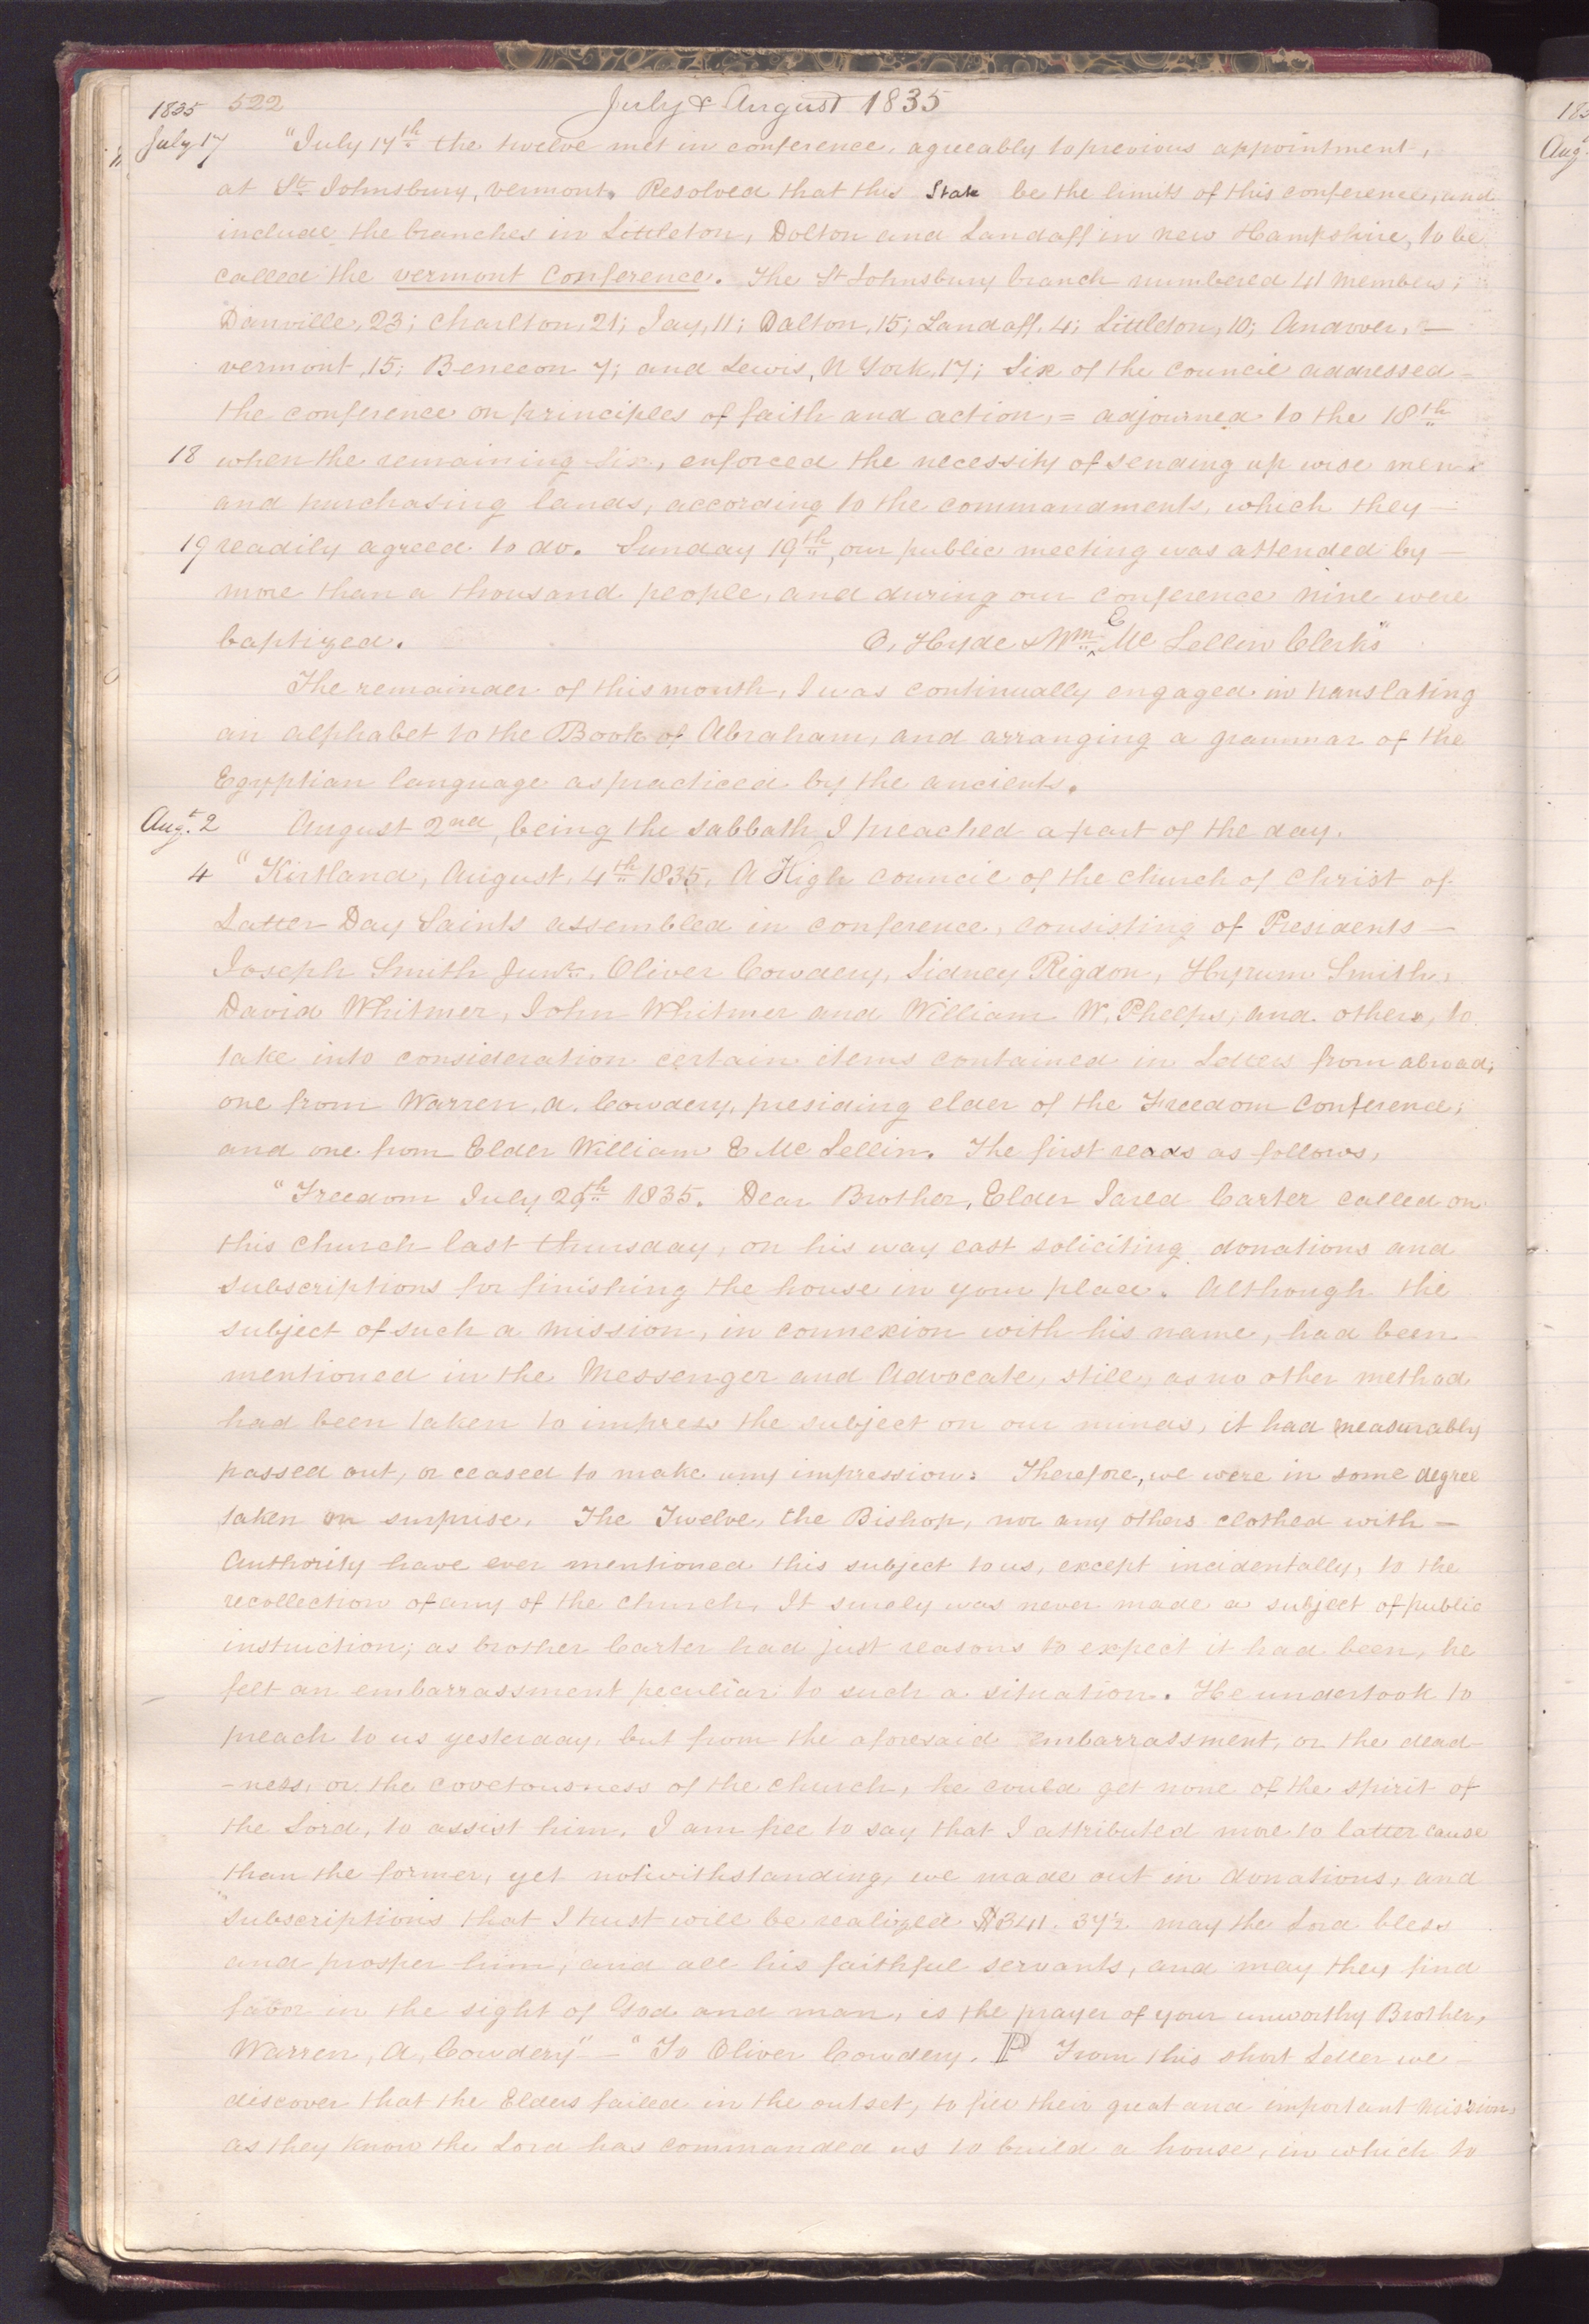 1835 522 July & August 1835
July 17 "July 17th the twelve met in conference, agreeably to previous appointment,
at St. Johnsbury, vermont. Resolved that this State be the limits of this conference, and
include the branches in Littleton, Dalton and Landaff in new Hampshire, to be
called the vermont Conference. The St Johnsbury branch numbered 41 members;
Danville, 23; Charlton, 21; Jay, 11; Dalton, 15; Landaff, 4; Littleton, 10; Andover, —
vermont, 15; Beneeon 7; and Lewis, N York, 17; Six of the Council addressed —
the conference on principles of faith and action, = adjourned to the 18th
18 when the remaining six, enforced the necessity of sending up wise men
and purchasing lands, according to the commandments, which they —
19 readily agreed to do. Sunday 19th, our public meeting was attended by —
more than a thousand people, and during our conference nine were
baptized. O. Hyde & Wm. E Mc Lellin Clerks"
The remainder of this month, I was continually engaged in translating
an alphabet to the Book of Abraham, and arranging a grammar of the
Egyptian language as practiced by the ancients.
Augt. 2 August 2nd, being the sabbath I preached a part of the day.
4 "Kirtland, August, 4th 1835. A High Council of the church of Christ of
Latter Day Saints assembled in conference, consisting of Presidents —
Joseph Smith Junr. Oliver Cowdery, Sidney Rigdon, Hyrum Smith,
David Whitmer, John Whitmer and William W. Phelps, and others, to
take into consideration certain items contained in Letters from abroad,
one from Warren, A. Cowdery, presiding elder of the Freedom Conference;
and one from Elder William E Mc Lellin. The first reads as follows,
"Freedom July 29th 1835. Dear Brother, Elder Jared Carter called on
this church last thursday, on his way east soliciting donations and
subscriptions for finishing the house in your place. Although the
subject of such a mission, in connexion with his name, had been
mentioned in the Messenger and Advocate, still, as no other method
had been taken to impress the subject on our minds, it had measurably
passed out, or ceased to make any impression: Therefore, we were in some degree
taken on surprise. The Twelve, the Bishop, nor any others clothed with —
Authority have ever mentioned this subject to us, except incidentally, to the
recollection of any of the church, It surely was never made a subject of public
instruction; as brother Carter had just reasons to expect it had been, he
felt an embarrassment peculiar to such a situation. He undertook to
preach to us yesterday, but from the aforesaid embarrassment, or the dead-
-ness, or the covetousness of the church, he could get none of the spirit of
the Lord, to assist him. I am free to say that I attributed more to latter cause
than the former, yet notwithstanding, we made out in donations, and
subscriptions that I trust will be realized $341. 37½ may the Lord bless
and prosper him, and all his faithful servants, and may they find
favor in the sight of God and man, is the prayer of your unworthy Brother,
Warren, A, Cowdery" — "To Oliver Cowdery. P From this short Letter we —
discover that the Elders failed in the outset, to fill their great and important mission,
as they know the Lord has commanded us to build a house, in which to
183
Aug